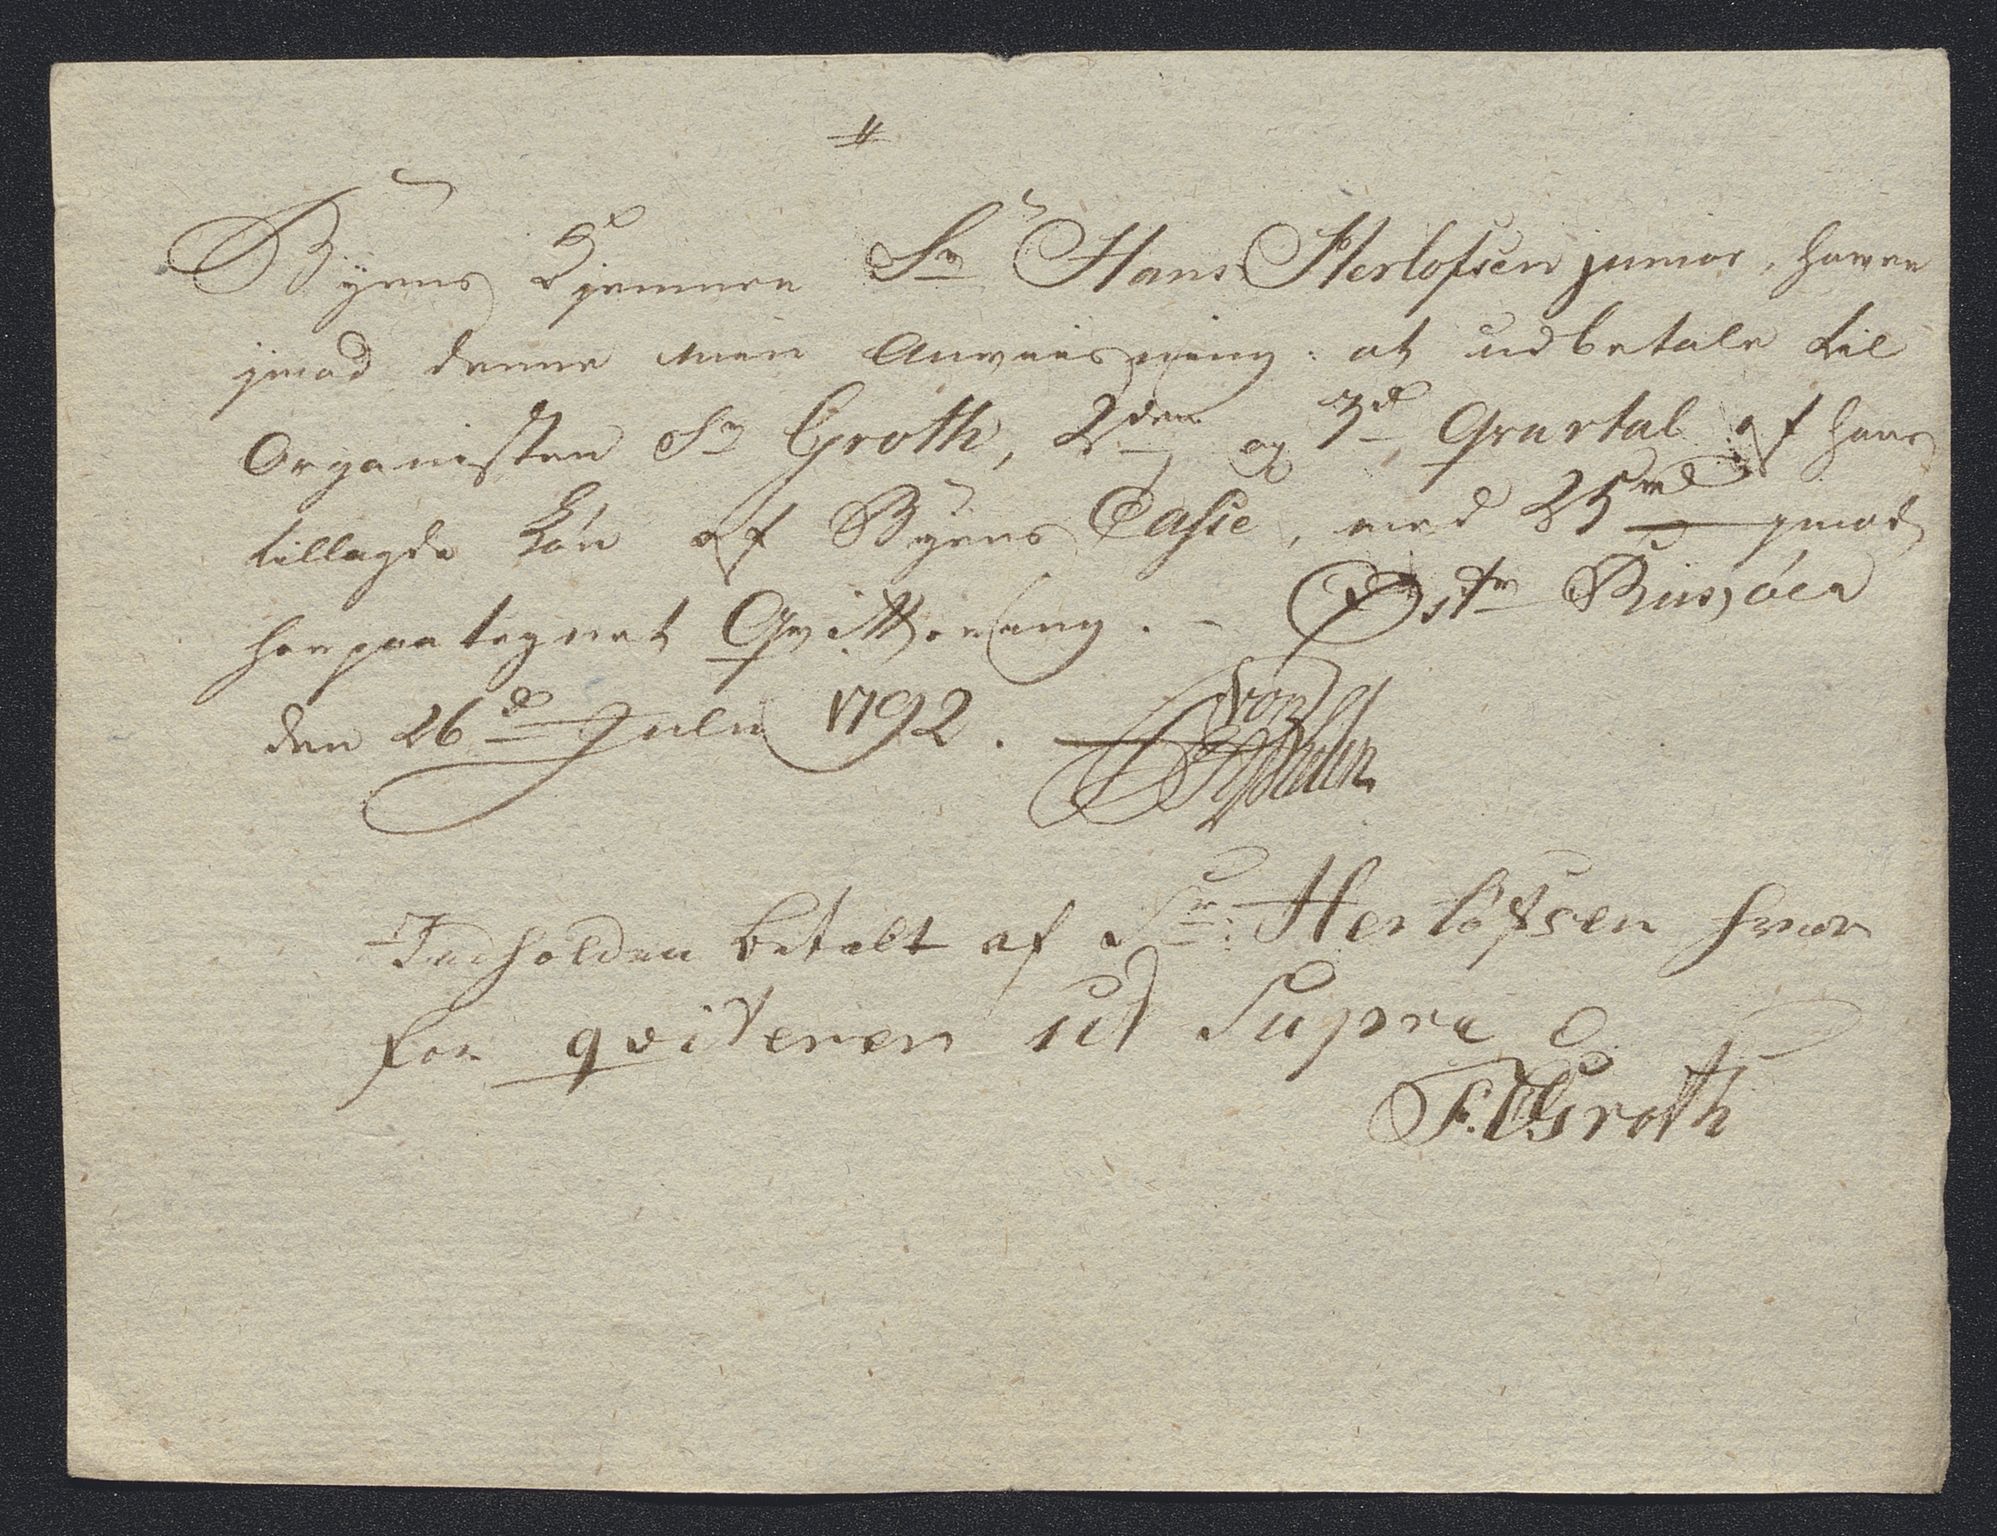 Byens Kjemner Sr Hans Herlofsen junior, haver
imod denne min Anviisning at udbetale til
Organisten Sr Groth, 2den og 3d Qvartal af hans
tillagde Løn af Byens Casse, med 25 rd imod
herpaategnet Qvittering. - Østr Riisøer
den 26d Julii 1792.
Indholden betalt af Sr: Herlofsen hvor
for qviterer ut Supra
F. C. Groth